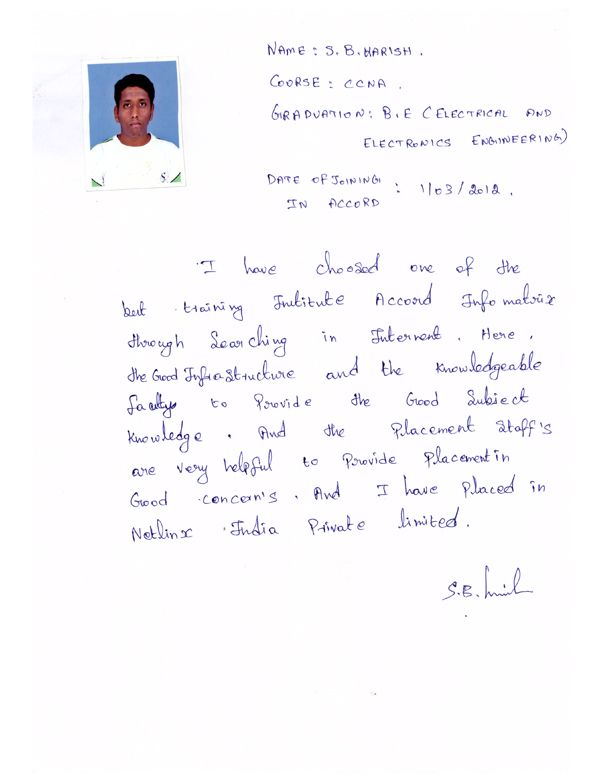 NAME : S.B.HARISH.
COURSE : CCNA.
GRADUATION : B.E (ELECTRICAL AND
ELECTRONICS ENGINEERING)
DATE OF JOINING
IN ACCORD : 1/03/2012.
I have choosed one of the
best training Institute Accord Info matrix
through Searching in Internent. Here,
the Good Infrastructure and the Knowledgeable
facultys to Provide the Good Subject
Knowledge. And the Placement Staff's
are very helpful to Provide Placement in
Good concern's. And I have Placed in
Netlinx India Private limited.
S.B.